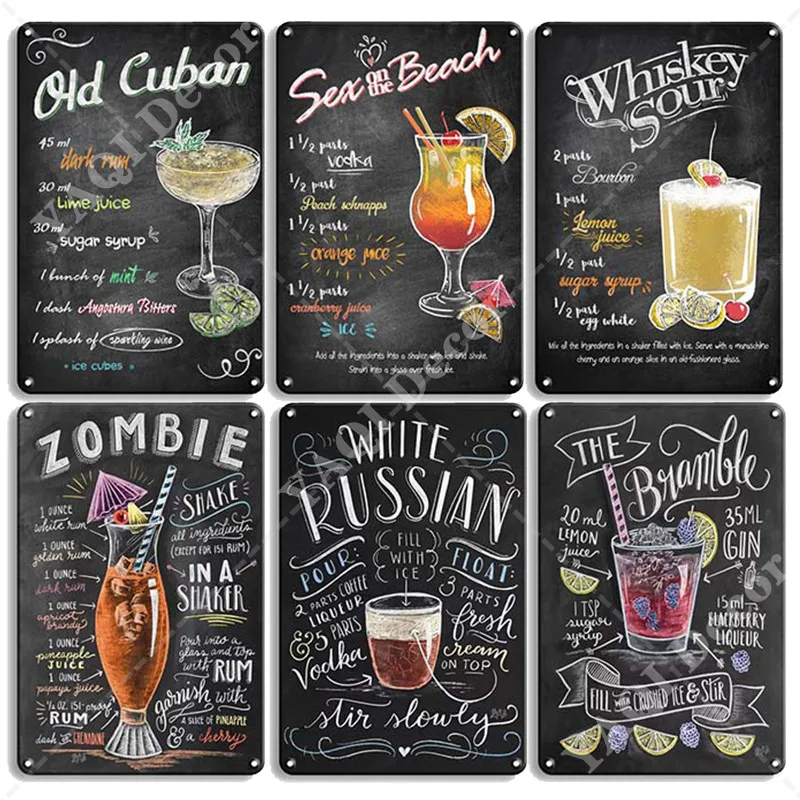 Old Cuban
45 ml
dark rum
30 ml
Lime juice
30 ml
sugar syrup
1 bunch of mint
1 dash Angostura Bitters
1 splash of sparkling wine
• ice cubes •
Sex on the Beach
1 1/2 parts
vodka
1/2 part
Peach schnapps
1 1/2 parts
orange juice
1 1/2 parts
cranberry juice
ICE
Add all the ingredients into a shaker with ice and shake.
Strain into a glass over fresh ice.
Whiskey
Sour
2 parts
Bourbon
1 part
Lemon
juice
1/2 part
sugar syrup
1/2 part
egg white
Mix all the ingredients in a shaker filled with ice. Serve with a maraschino
cherry and an orange slice in an old-fashioned glass.
ZOMBIE
1 OUNCE
white rum
1 OUNCE
golden rum
1 OUNCE
dark rum
1 OUNCE
apricot
brandy
1 OUNCE
pineapple
JUICE
1 OUNCE
papaya juice
1/2 OZ. 151-proof
RUM
dash OF GRENADINE
SHAKE
all ingredients
(EXCEPT FOR 151 RUM)
IN A
SHAKER
Pour into a
glass and top
with RUM
garnish with
A SLICE OF PINEAPPLE
& a cherry
WHITE
RUSSIAN
FILL
WITH
ICE
POUR:
2 PARTS COFFEE
LIQUEUR
& 5 PARTS
Vodka
FLOAT:
3 PARTS
fresh
cream
ON TOP
stir slowly
THE
Bramble
20 ml
LEMON
juice
1 TSP
sugar
syrup
35ML
GIN
15ml
BLACKBERRY
LIQUEUR
FILL WITH CRUSHED ICE & STIR
YAQI Decor
YAQI Decor
YAQI Decor